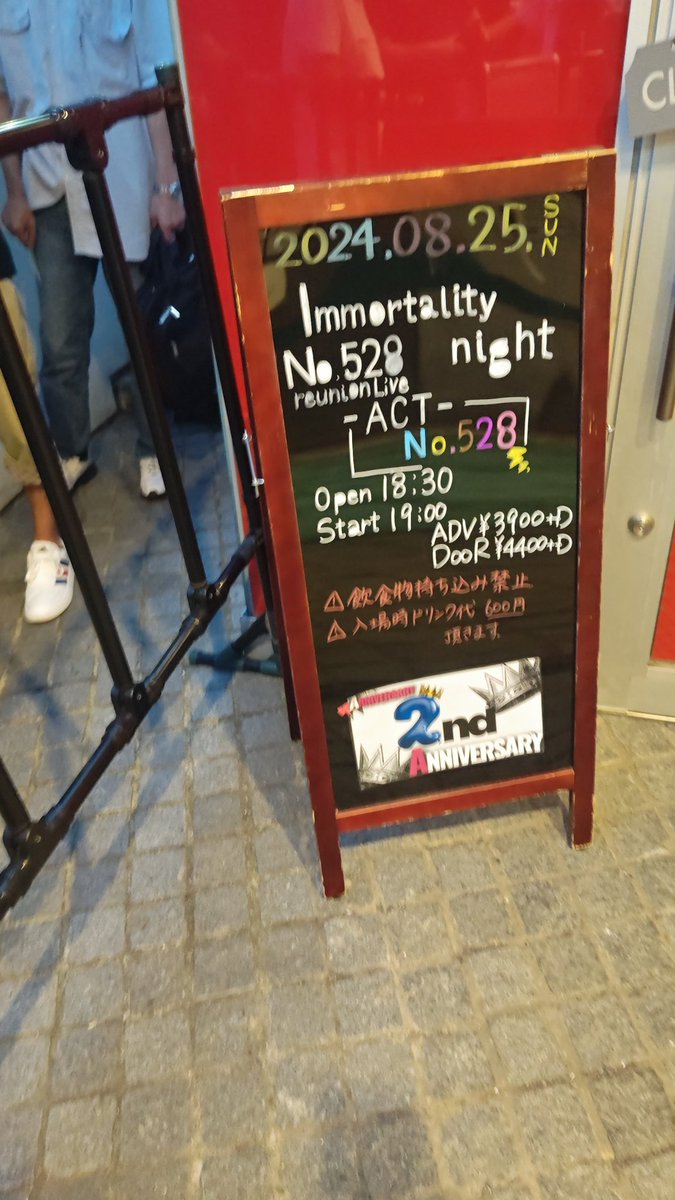 CL
2024.08.25. SUN
Immortality
night
No.528
reunion Live
-ACT-
No.528
Open 18:30
Start 19:00
ADV ¥3900+D
DooR ¥4400+D
⚠飲食物持ち込み禁止
⚠入場時ドリンク代 600円
頂きます
ANNIVERSARY
2nd
ANNIVERSARY